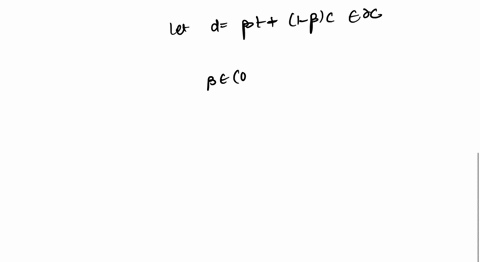 let d= βt + (1-β)c ∈ ∂G
β ∈ (0